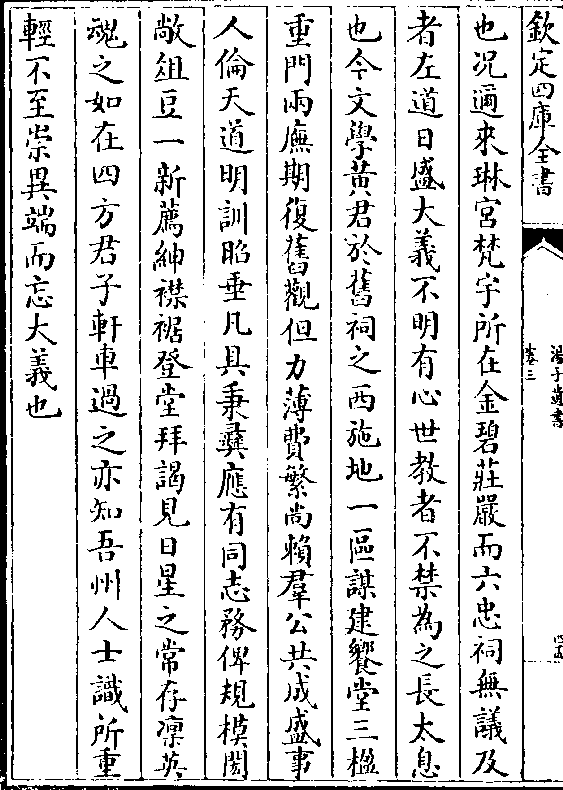 欽定四庫全書
湯子遺書
卷三
也况邇来琳宮梵宇所在金碧莊嚴而六忠祠無議及
者左道日盛大義不明有心世教者不禁為之長太息
也今文學黃君於舊祠之西施地一區謀建饗堂三楹
重門兩廡期復舊觀但力薄費繁尚賴羣公共成盛事
人倫天道明訓昭垂凡具秉彞應有同志務俾規模閎
敞俎豆一新薦紳襟裾登堂拜謁見日星之常存凜英
魂之如在四方君子軒車過之亦知吾州人士識所重
輕不至崇異端而忘大義也